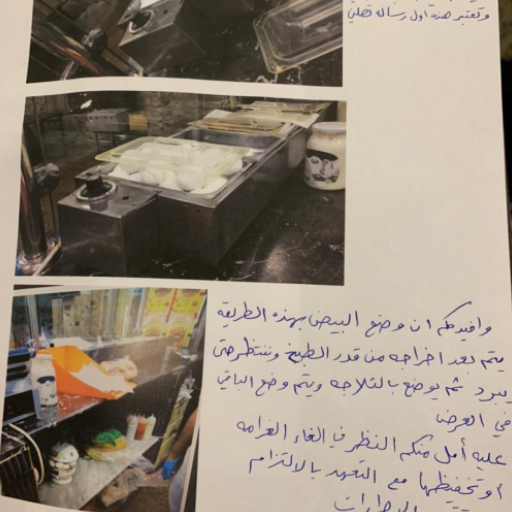 وتعتبر هذه اول رساله تصلني
وافيدكم ان وضع البيض بهذه الطريقه
يتم بعد اخراجه من قدر الطبخ وننتظر حتى
يبرد ثم يوضع بالثلاجه ويتم وضع الباقي
في العرض
عليه أمل منكم النظر في الغاء الغرامه
أو تخفيضها مع التعهد بالالتزام